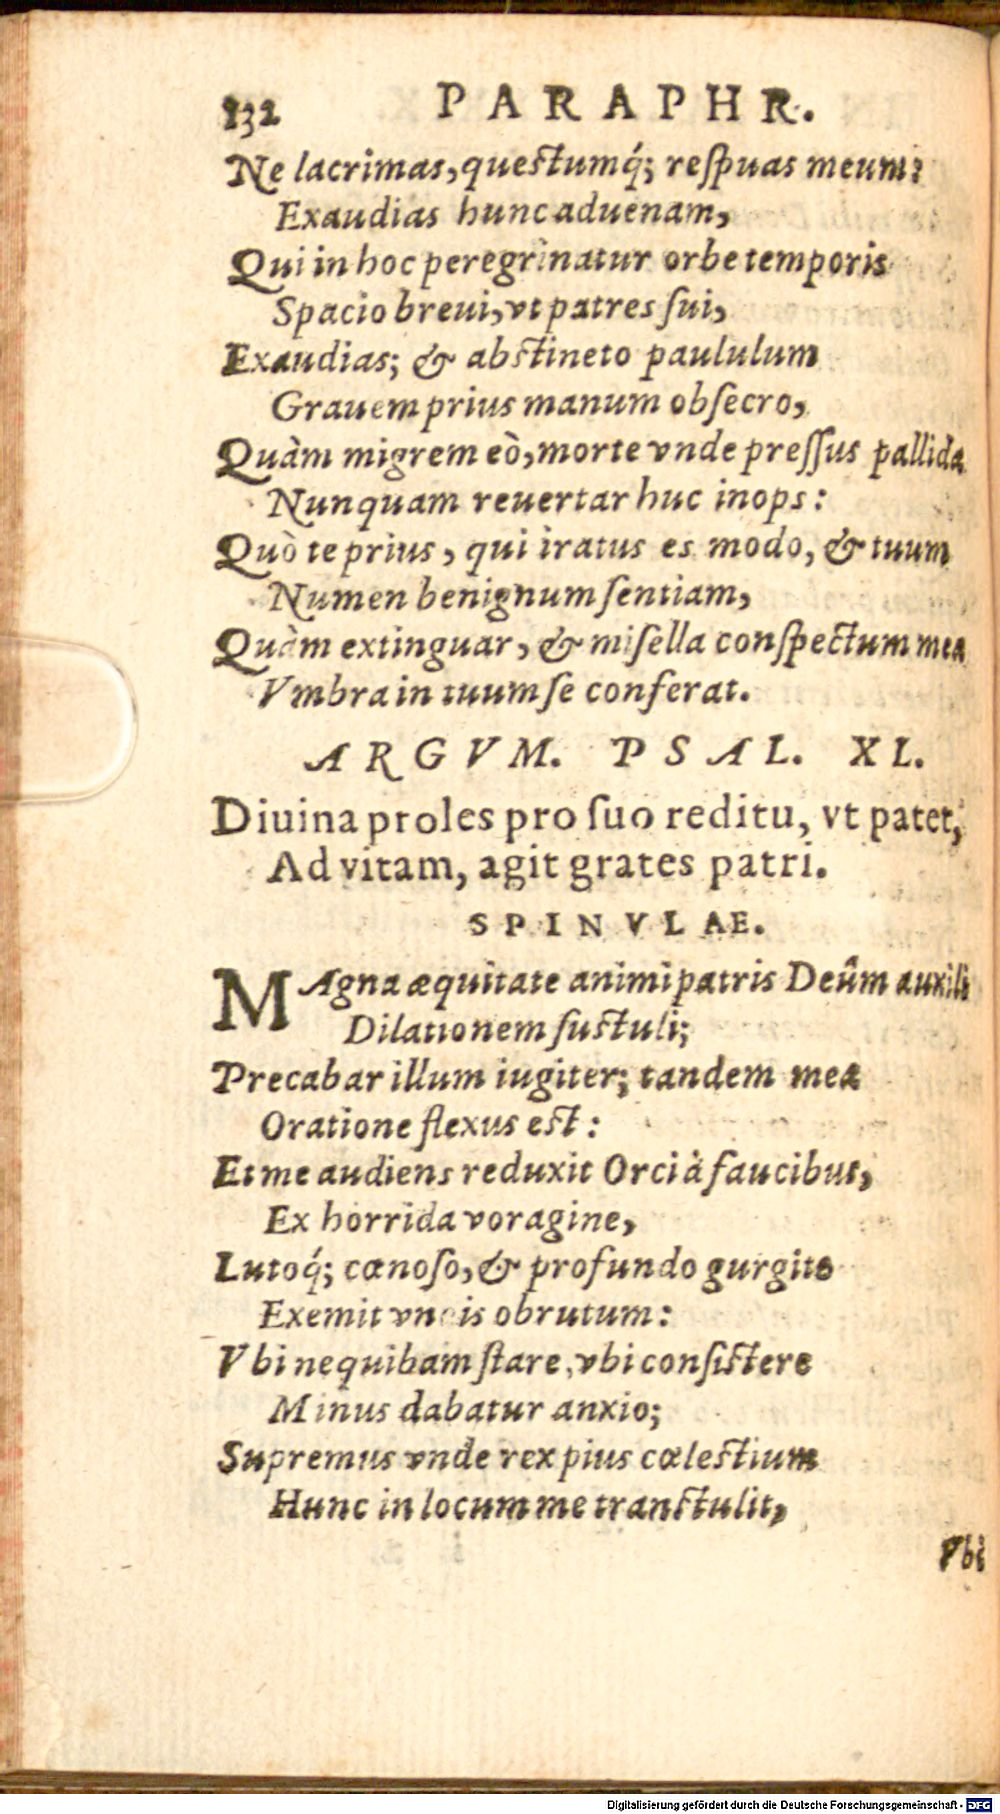 132 PARAPHR.
Ne lacrimas, questumq́; reſpuas meum:
Exaudias hunc aduenam,
Qui in hoc peregrinatur orbe temporis
Spacio breui, vt patres ſui,
Exaudias; & abstineto paululum
Grauem prius manum obſecro,
Quàm migrem eò, morte vnde preſſus pallida
Nunquam reuertar huc inops:
Quò te prius, qui iratus es modo, & tuum
Numen benignum ſentiam,
Quàm extinguar, & miſella conſpectum mea
Vmbra in tuum ſe conferat.
ARGVM. PSAL. XL.
Diuina proles pro ſuo reditu, vt patet,
Ad vitam, agit grates patri.
SPINVLAE.
MAgna æquitate animi patris Deûm auxili
Dilationem ſustuli;
Precabar illum iugiter; tandem mea
Oratione flexus est:
Et me audiens reduxit Orci à faucibus,
Ex horrida voragine,
Lutoq́; cœnoſo, & profundo gurgite
Exemit vncis obrutum:
Vbi nequibam ſtare, vbi conſistere
Minus dabatur anxio;
Supremus vnde rex pius cœlestium
Hunc in locum me transtulit,
Vbi
Digitalisierung gefördert durch die Deutsche Forschungsgemeinschaft - DFG